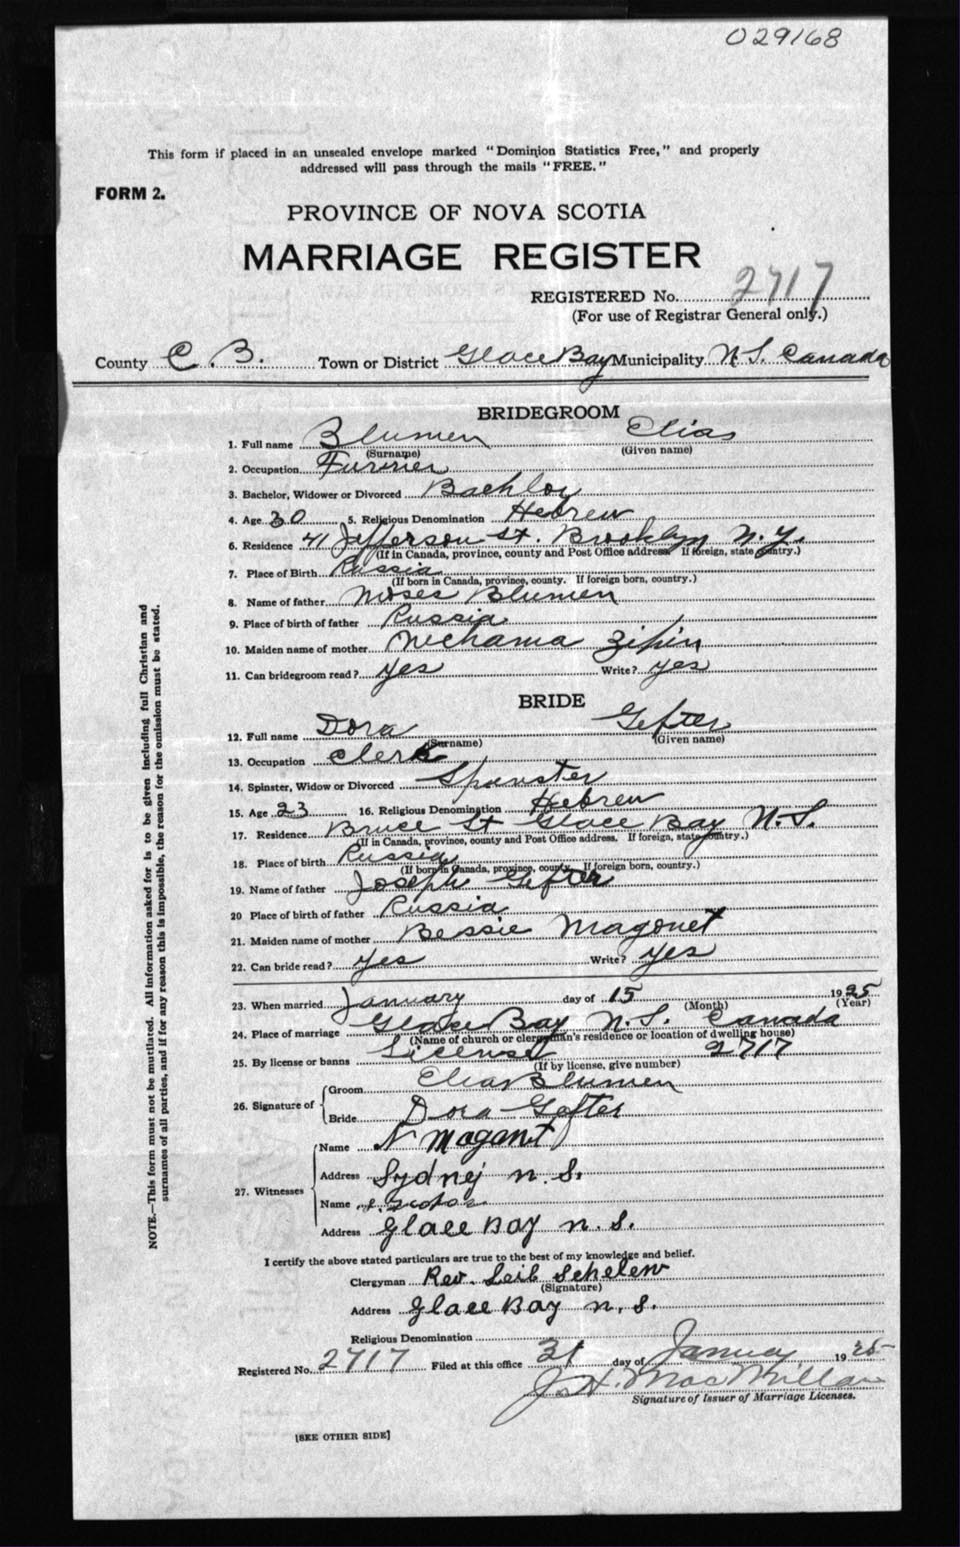 029168
This form if placed in an unsealed envelope marked "Dominion Statistics Free," and properly
addressed will pass through the mails "FREE."
FORM 2.
PROVINCE OF NOVA SCOTIA
MARRIAGE REGISTER
REGISTERED No. 2717
(For use of Registrar General only.)
County C. B. Town or District Glace Bay Municipality N.S. Canada
BRIDEGROOM
1. Full name Blumen Elias
(Surname) (Given name)
2. Occupation Furrier
3. Bachelor, Widower or Divorced Bachlor
4. Age 30 5. Religious Denomination Hebrew
6. Residence 41 Jefferson St. Brooklyn N.Y.
(If in Canada, province, county and Post Office address. If foreign, state country.)
7. Place of Birth Russia
(If born in Canada, province, county. If foreign born, country.)
8. Name of father Moses Blumen
9. Place of birth of father Russia
10. Maiden name of mother Nchama Zipin
11. Can bridegroom read? yes Write? yes
BRIDE
12. Full name Dora Gefter
(Surname) (Given name)
13. Occupation Clerk
14. Spinster, Widow or Divorced Spinster
15. Age 23 16. Religious Denomination Hebrew
17. Residence Bruce St Glace Bay N.S.
(If in Canada, province, county and Post Office address. If foreign, state country.)
18. Place of birth Russia
(If born in Canada, province, county. If foreign born, country.)
19. Name of father Joseph Gefter
20 Place of birth of father Russia
21. Maiden name of mother Bessie Magonet
22. Can bride read? yes Write? yes
23. When married January day of 15 1925
(Month) (Year)
24. Place of marriage Glace Bay N.S. Canada
(Name of church or clergyman's residence or location of dwelling house)
25. By license or banns License 2717
(If by license, give number)
26. Signature of
Groom Elias Blumen
Bride Dora Gefter
27. Witnesses
Name N Magant
Address Sydney N.S.
Name
Address Glace Bay N.S.
I certify the above stated particulars are true to the best of my knowledge and belief.
Clergyman Rev. Leib Schelew
(Signature)
Address Glace Bay N.S.
Religious Denomination
Registered No. 2717 Filed at this office 31 day of January 1925
J. H. MacMillan
Signature of Issuer of Marriage Licenses.
[SEE OTHER SIDE]
NOTE.—This form must not be mutilated. All information asked for is to be given including full Christian and
surnames of all parties, and if for any reason this is impossible, the reason for the omission must be stated.